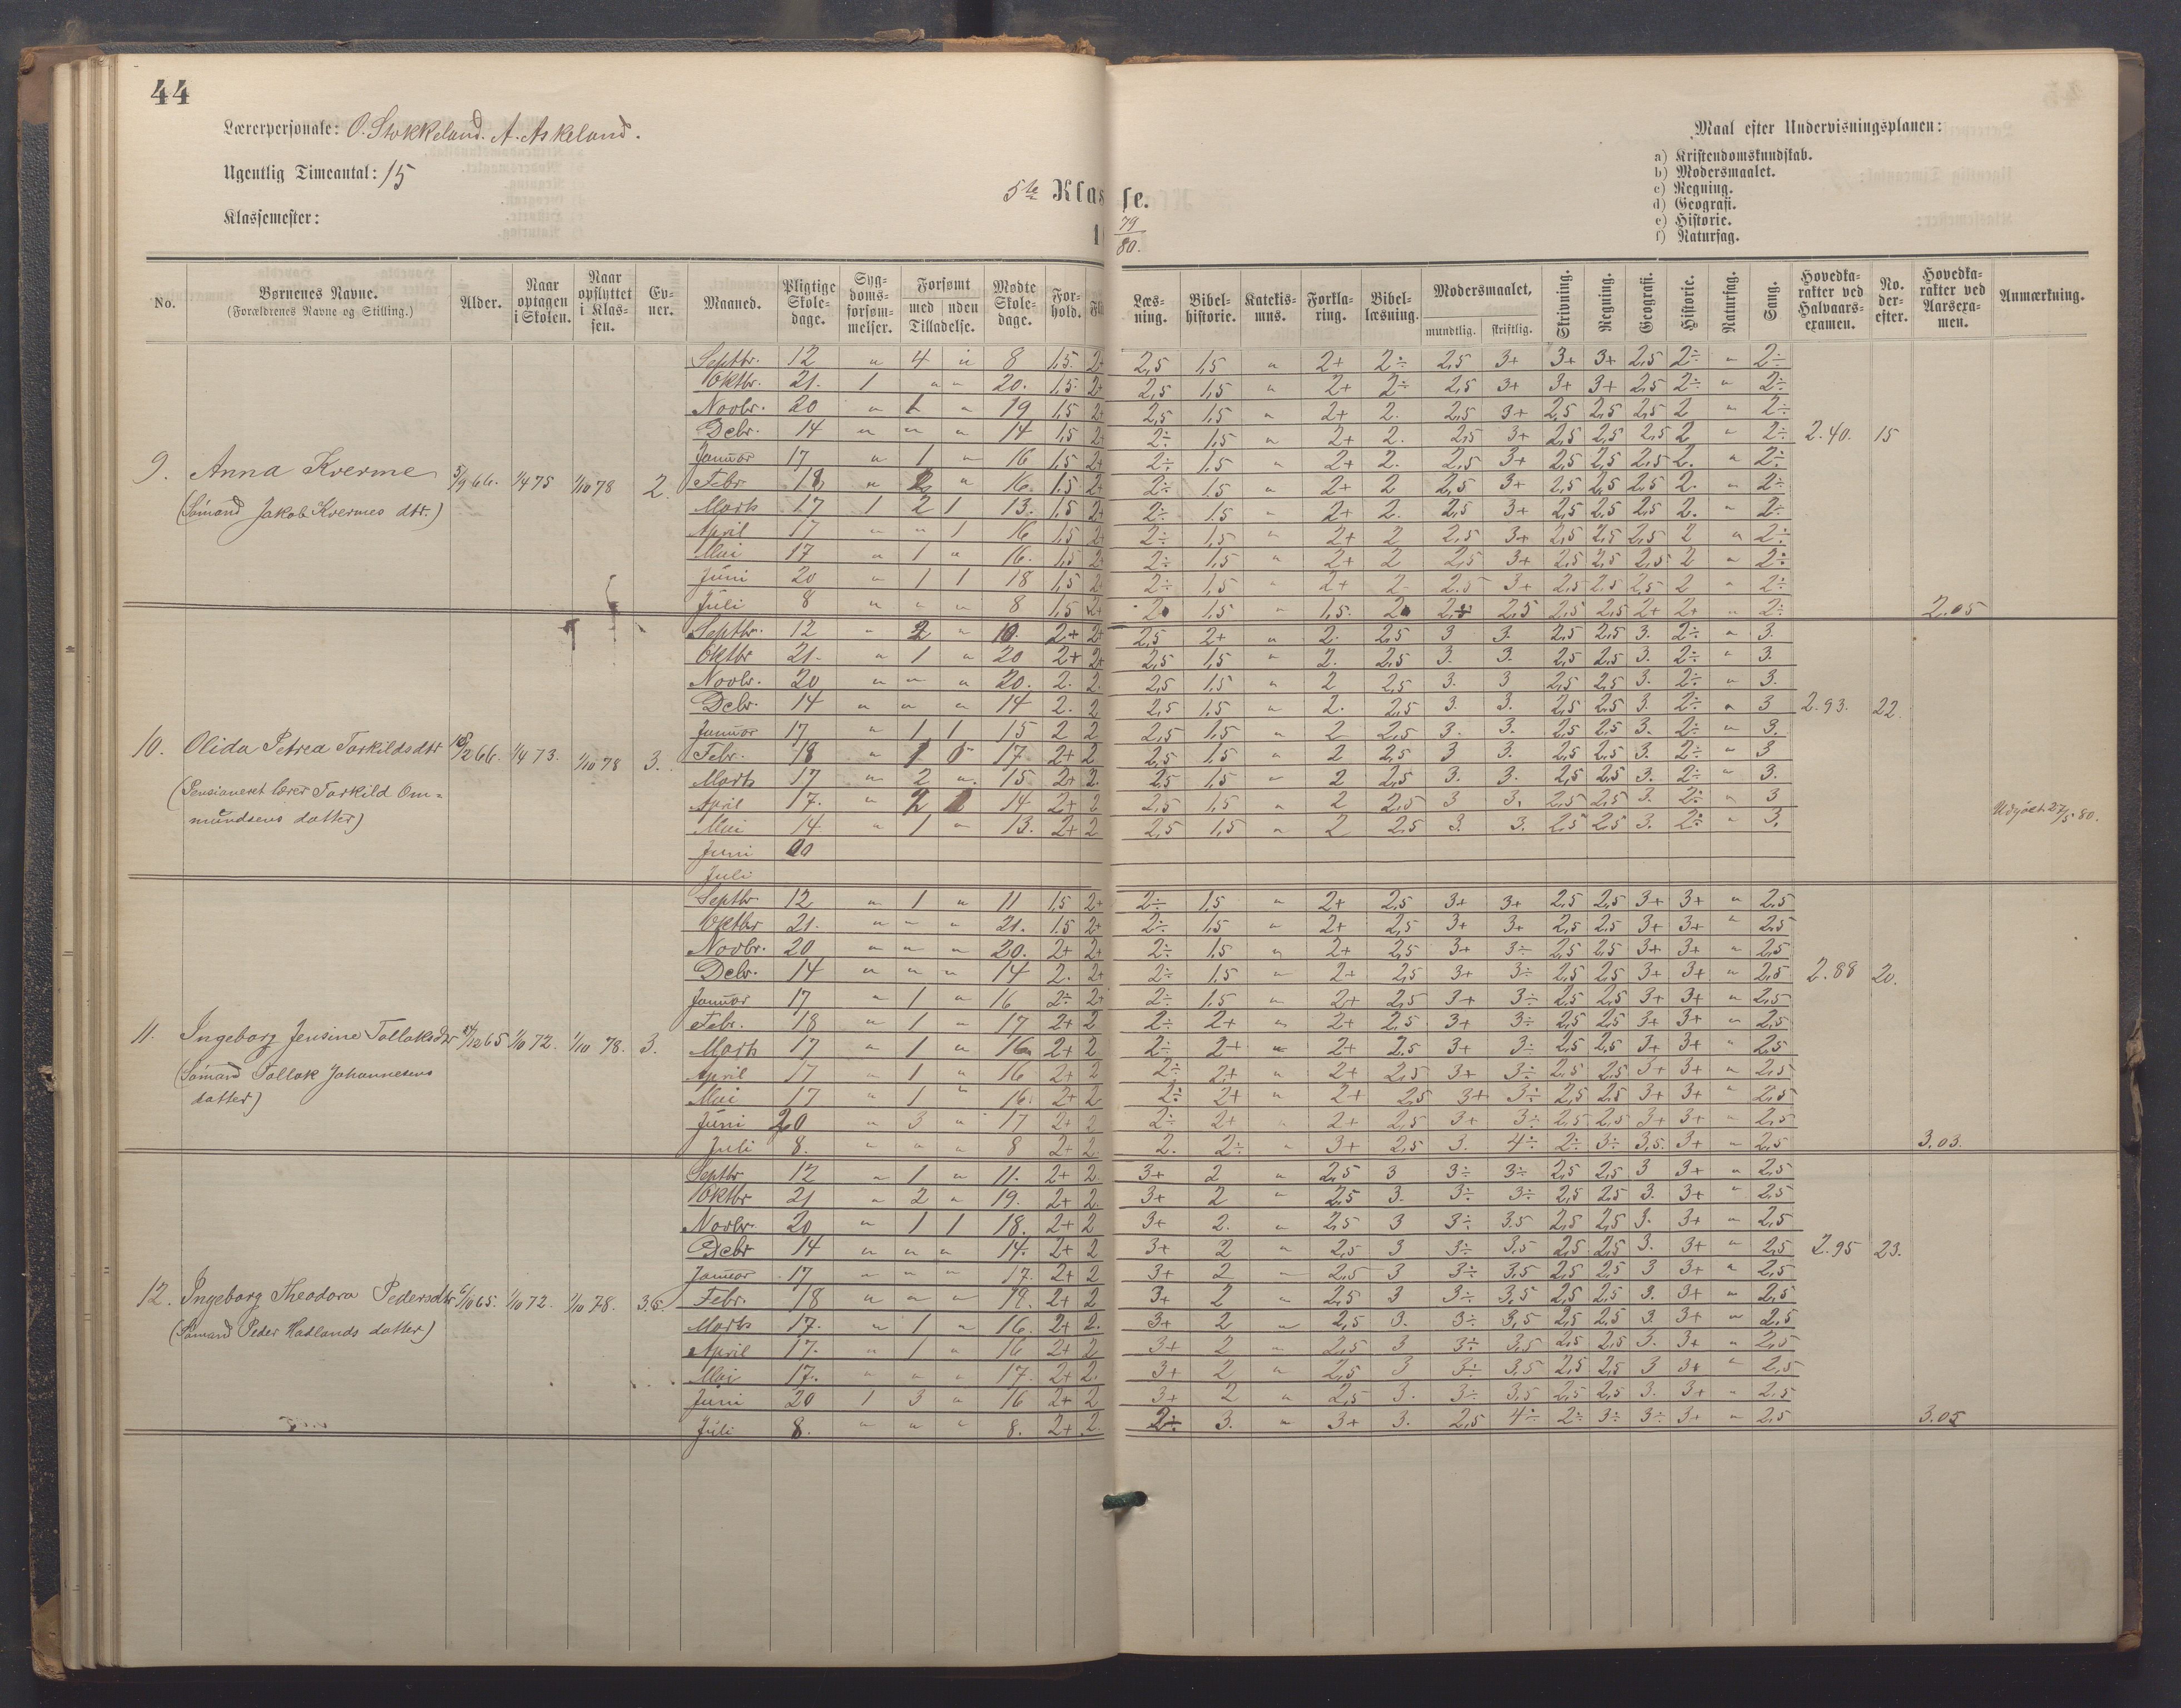 44
Lærerpersonale: O. Stokkeland. A. Askeland.
Ugentlig Timeantal: 15
Klassemester:
5te Klasse.
79/80.
Maal efter Undervisningsplanen:
a) Kristendomskundskab.
b) Modersmaalet.
c) Regning.
d) Geografi.
e) Historie.
f) Naturfag.
No. Børnenes Navne. (Forældrenes Navne og Stilling.) Alder. Naar optagen i Skolen. Naar opflyttet i Klassen. Evner. Maaned. Pligtige Skoledage. Sygdomsforsømmelser. Forsømt med uden Tilladelse. Mødte Skoledage. Forhold. Læsning. Bibelhistorie. Katekismus. Forklaring. Bibellæsning. Modersmaalet, mundtlig. skriftlig. Skrivning. Regning. Geografi. Historie. Naturfag. Sang. Hovedkarakter ved Halvaarsexamen. No. derefter. Hovedkarakter ved Aarsexamen. Anmærkning.
Septbr. 12 " 4 " 8 1,5 2+ 2,5 1,5 " 2+ 2÷ 2,5 3+ 3+ 3+ 2,5 2÷ " 2÷
Oktbr. 21. 1 " " 20. 1,5 2+ 2,5 1,5 " 2+ 2÷ 2,5 3+ 3+ 3+ 2,5 2÷ " 2÷
Novbr. 20 " 1 " 19 1,5 2+ 2,5 1,5 " 2+ 2. 2,5 3+ 2,5 2,5 2,5 2 " 2÷
Debr. 14 " " " 14 1,5 2+ 2÷ 1,5 " 2+ 2. 2,5 3+ 2,5 2,5 2,5 2 " 2÷ 2.40. 15
Januar 17 " 1 " 16 1,5 2+ 2÷ 1,5 " 2+ 2. 2,5 3+ 2,5 2,5 2,5 2. " 2÷
9. Anna Kverme 5/9 66. 1/4 75 1/10 78 2. Febr. 18 " 2 " 16. 1,5 2+ 2÷ 1,5 " 2+ 2 2,5 3+ 2,5 2,5 2,5 2. " 2÷
(Sømand Jakob Kvermes dtr.) Marts 17 1 2 1 13. 1,5 2+ 2÷ 1,5 " 2+ 2. 2,5 3+ 2,5 2,5 2,5 2. " 2÷
April 17 " " 1 16 1,5 2+ 2÷ 1,5 " 2+ 2 2,5 3+ 2,5 2,5 2,5 2 " 2÷
Mai 17 " 1 " 16. 1,5 2+ 2÷ 1,5 " 2+ 2 2,5 3+ 2,5 2,5 2,5 2 " 2÷
Juni 20 " 1 1 18 1,5 2+ 2÷ 1,5 " 2+ 2 2.5 3+ 2,5 2,5 2,5 2 " 2÷
Juli 8 " " " 8 1,5 2+ 2 1,5 " 1,5. 2 2,5 2,5 2,5 2+ 2+ " 2÷ 2.05
Septbr. 12 " 2 " 10. 2+ 2+ 2,5 2+ " 2. 2,5 3 3. 2,5 2,5 3. 2÷ " 3.
Oktbr 21. " 1 " 20 2+ 2+ 2,5 1,5 " 2. 2,5 3. 3. 2,5 2,5 3. 2÷ " 3.
Novbr. 20 " " " 20. 2. 2. 2,5 1,5 " 2 2,5 3. 3 2,5 2,5 3. 2÷ " 3.
Debr. 14 " " " 14 2. 2 2,5 1,5 " 2. 2,5 3. 3. 2,5 2,5 3. 2÷ " 3 2.93. 22.
Januar 17 " 1 1 15 2 2 2,5 1,5 " 2 2,5 3. 3. 2,5 2,5 3. 2÷ " 3.
10. Olida Petrea Torkildsdtr 66. 1/4 73. 1/10 78 3. Febr. 18 " 1 17. 2+ 2 2,5 1,5 " 2 2,5 3 3. 2,5 2,5 3. 2÷ " 3
(Pensioneret lærer Torkild Om= Marts 17 " 2 " 15 2+ 2. 2,5 1,5 " 2 2,5 3. 3. 2,5 2,5 3. 2÷ " 3.
mundsens datter) April 17. " 2 1 14 2+ 2 2,5 1,5 " 2 2,5 3 3. 2,5 2,5 3. 2÷ " 3 27/5 80.
Mai 14 " 1 " 13. 2+ 2 2,5 1,5 " 2 2,5 3. 3. 2,5 2,5 3. 2÷ " 3.
Juni
Juli
Septbr 12 " 1 " 11 1,5 2+ 2÷ 1,5 " 2+ 2,5 3+ 3+ 2,5 2,5 3+ 3+ " 2,5
Oktbr 21. " " " 21. 1.5 2+ 2÷ 1,5 " 2+ 2,5 3+ 3+ 2,5 2,5 3+ 3+ " 2,5
Novbr. 20 " " " 20. 2+ 2+ 2÷ 1,5 " 2+ 2,5 3+ 3÷ 2,5 2,5 3+ 3+ " 2,5
Debr. 14 " " " 14 2. 2+ 2÷ 1,5 " 2+ 2,5 3+ 3÷ 2,5 2,5 3+ 3+ " 2,5 2.88 20.
Januar 17 " 1 " 16 2÷ 2+ 2÷ 1,5 " 2+ 2,5 3+ 3÷ 2,5 2,5 3+ 3+ " 2,5
Febr. 18 " 1 " 17 2+ 2 2÷ 2+ " 2+ 2,5 3+ 3÷ 2,5 2,5 3+ 3+ " 2,5
11. Ingeborg Jensine Tollaksdtr 65 1/10 72. 1/10 78. 3. Marts 17 " 1 " 16 2+ 2 2÷ 2+ " 2+ 2,5 3+ 3÷ 2,5 2,5 3+ 3+ " 2,5
(Sømand Tollak Johannesens April 17 " 1 " 16 2+ 2 2÷ 2+ " 2+ 2,5 3+ 3÷ 2,5 2,5 3+ 3+ " 2,5
datter) Mai 17 " 1 " 16. 2+ 2 2÷ 2+ " 2+ 2,5 3+ 3÷ 2,5 2,5 3+ 3+ " 2,5
Juni 20 " 3 " 17 2+ 2 2÷ 2+ " 2+ 2,5 3+ 3÷ 2,5 2,5 3+ 3+ " 2,5
Juli 8. " " " 8 2+ 2. 2. 2÷ " 3+ 2,5 3. 4÷ 2÷ 3÷ 3,5 3+ " 2,5 3.03.
Septbr 12 " 1 " 11. 2+ 2. 3+ 2 " 2,5 3 3÷ 3÷ 2,5 2,5 3 3+ " 2,5
Oktbr 21 " 2 " 19. 2+ 2. 3+ 2 " 2,5 3. 3÷ 3÷ 2,5 2,5 3. 3+ " 2,5
Novbr. 20 " 1 1 18. 2+ 2 3+ 2. " 2,5 3 3÷ 3.5 2,5 2,5 3. 3+ " 2,5
Debr 14 " " " 14. 2+ 2 3+ 2 " 2,5 3 3÷ 3,5 2,5 2,5 3. 3+ " 2,5 2.95 23.
Januar 17 " " " 17. 2+ 2 3+ 2 " 2,5 3 3÷ 3,5 2,5 2,5 3 3+ " 2,5
12. Ingeborg Theodora Pedersdtr 65. 1/10 72. 1/10 78. 3.5. Febr. 18 " " " 18. 2+ 2 3+ 2 " 2,5 3 3÷ 3,5 2,5 2,5 3. 3+ " 2,5
(Sømand Peder Hadlands datter) Marts 17. " 1 " 16. 2+ 2. 3+ 2 " 2,5 3. 3÷ 3,5 2,5 2,5 3. 3+ " 2,5
April 17. " 1 " 16 2+ 2 3+ 2 " 2,5 3 3÷ 3,5 2,5 2,5 3. 3+ " 2,5
Mai 17. " " " 17. 2+ 2. 3+ 2 " 2,5 3 3÷ 3,5 2,5 2,5 3 3+ " 2,5
Juni 20 1 3 " 16 2+ 2 3+ 2 " 2,5 3. 3÷ 3,5 2,5 2,5 3. 3+ " 2,5
Juli 8. " " " 8. 2+ 2. 2÷ 3. " 3+ 3. 2,5 4÷ 2÷ 3÷ 3÷ 3+ " 2,5 3.05